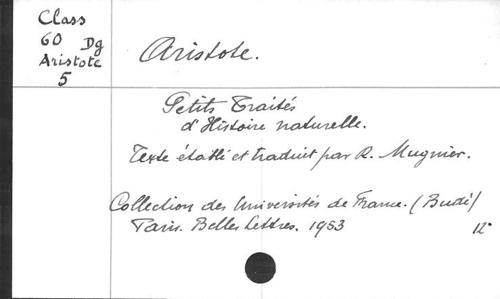 Class
60 Dg
Aristote
5
Aristote.
Petits Traités
d'Histoire naturelle.
Texte établi et traduit par R. Mugnier.
Collection des Universités de France. (Budé)
Paris. Belles Lettres. 1953 12°